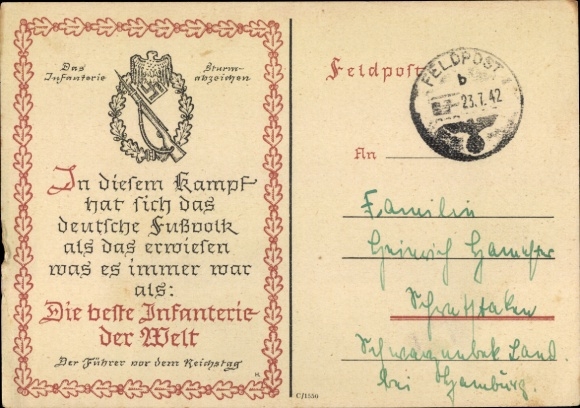 Das Sturm-
Infanterie abzeichen
In diesem Kampf
hat sich das
deutsche Fußvolk
als das erwiesen
was es immer war
als:
Die beste Infanterie
der Welt
Der Führer vor dem Reichstag
Feldpost
FELDPOST
b
23.7.42
An
Familie
Heinrich
Land
bei Hamburg.
C/1356